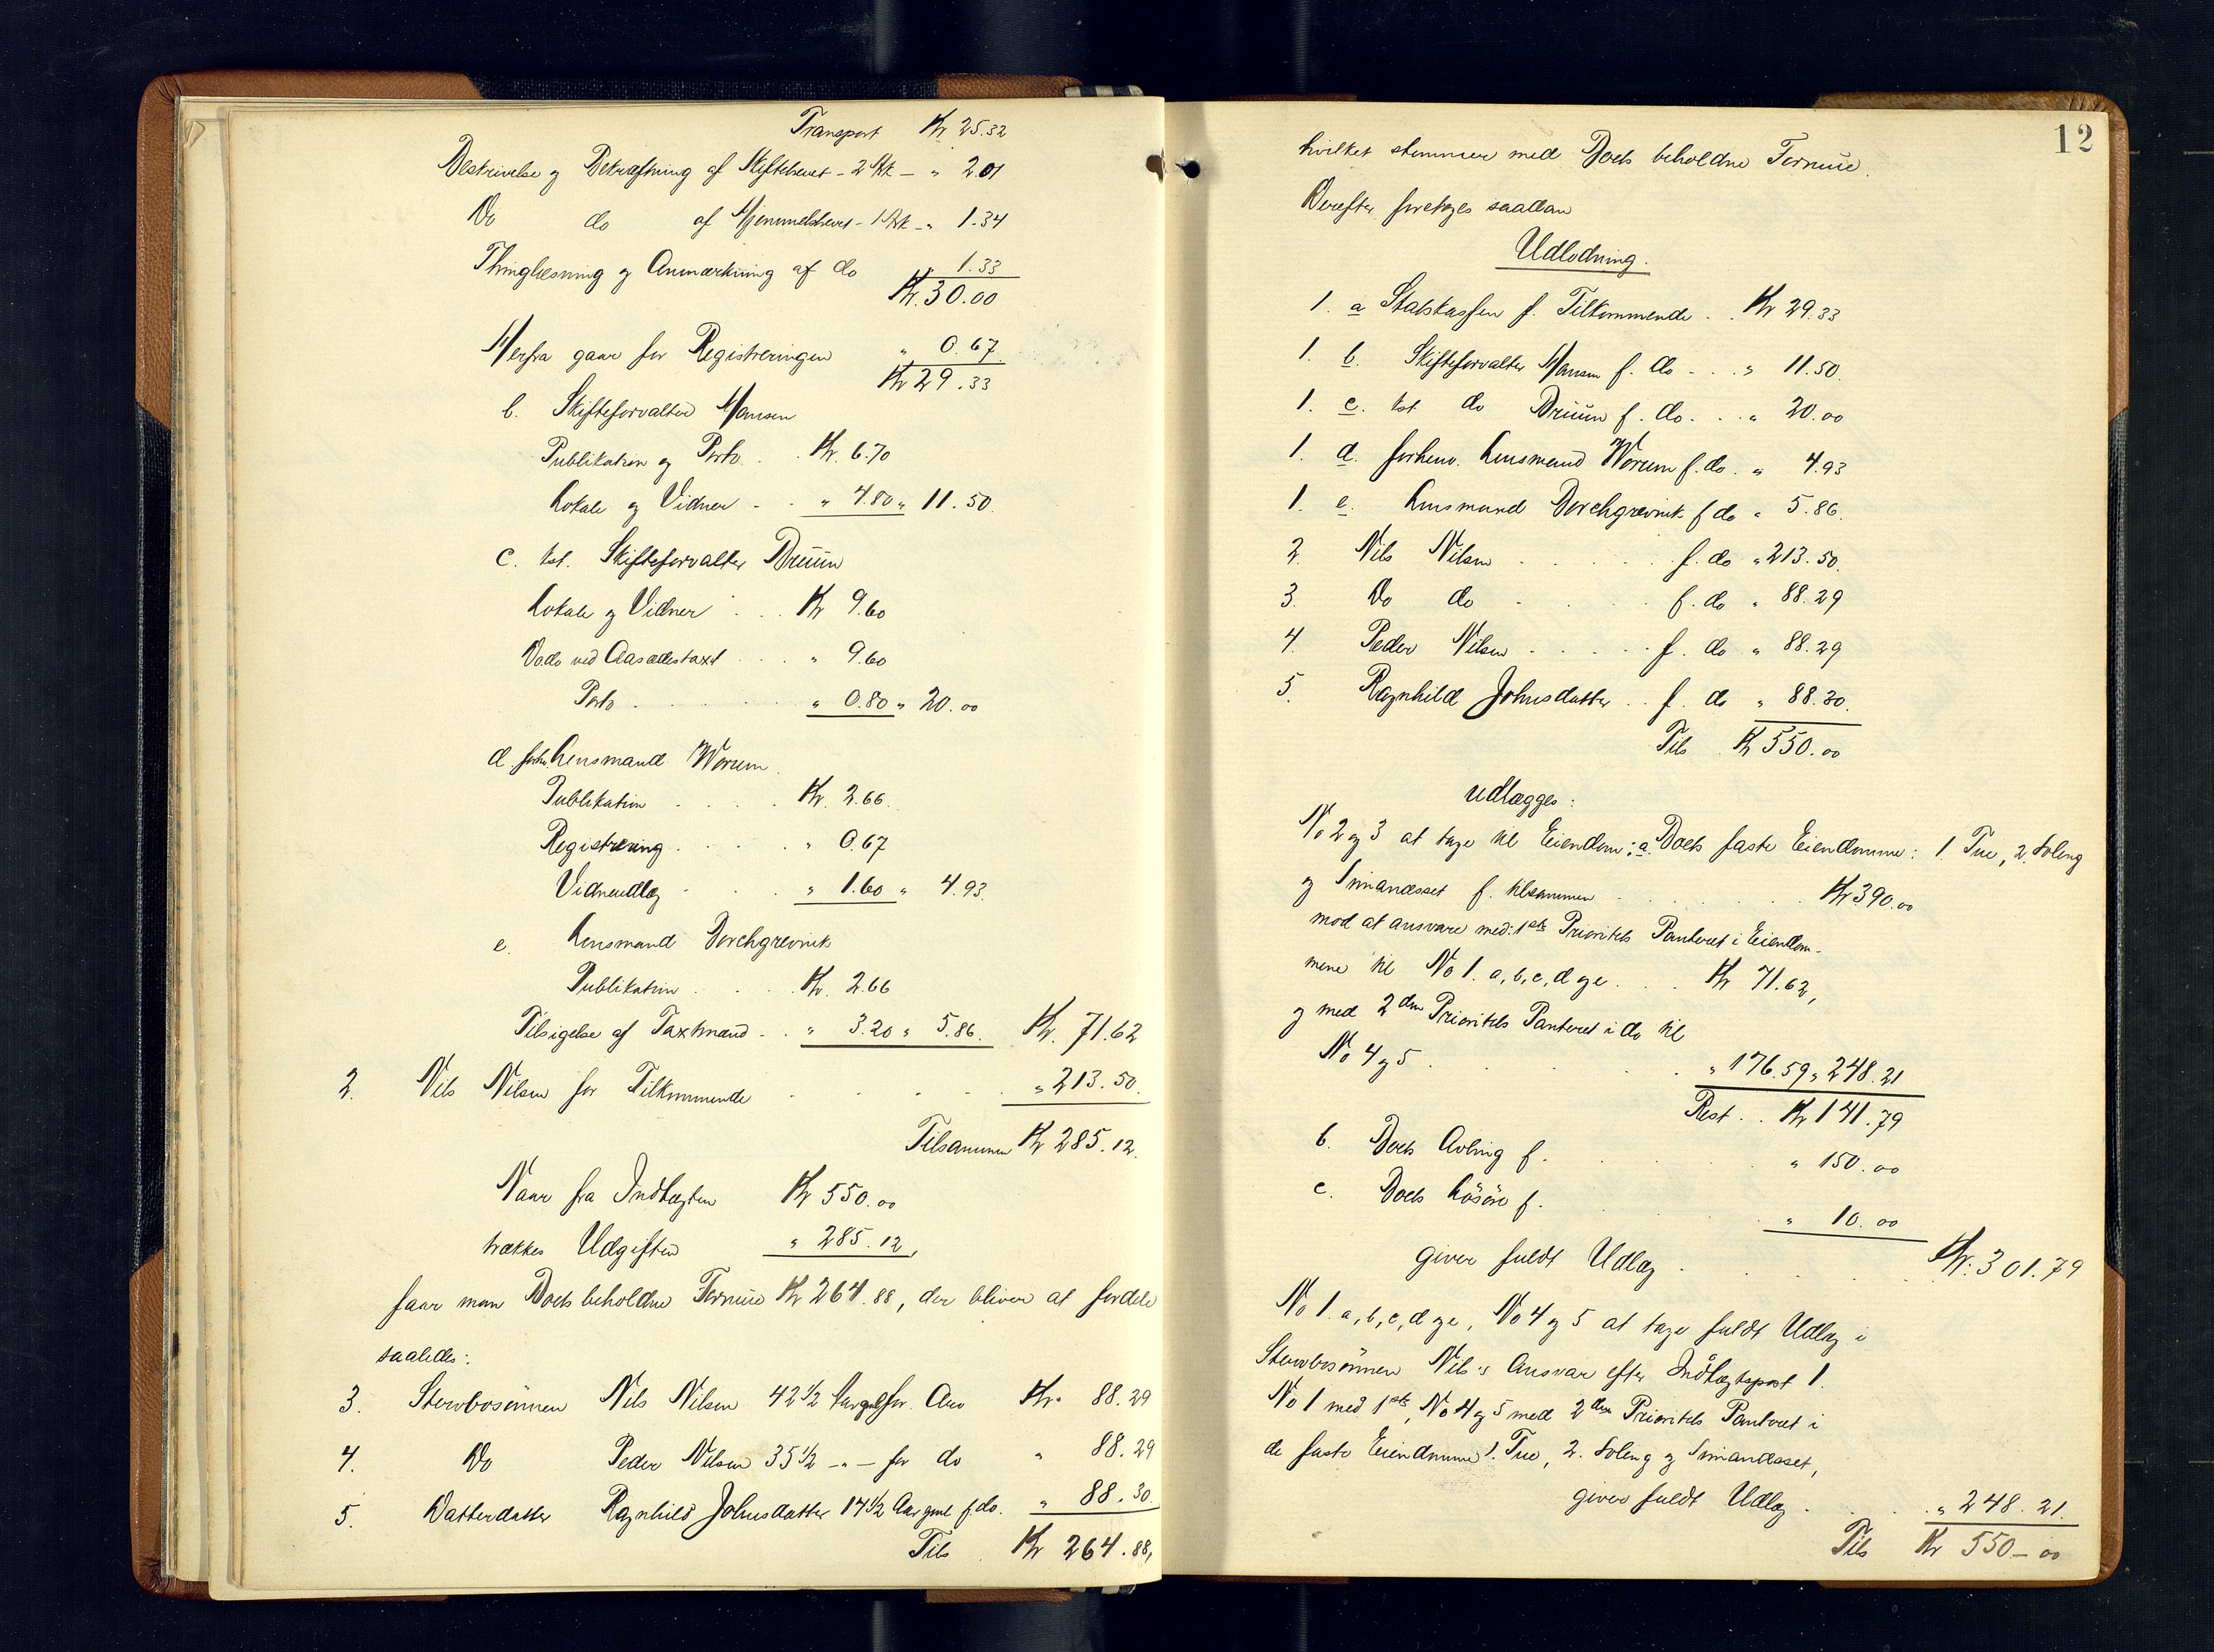 Transport Kr 25.32
Beskrivelse og Bekræftning af Skiftebrevet - 2 Stk - " 2.01
Do do af Hjemmelsbrevet - 1 Stk - " 1.34
Thinglæsning og Anmærkning af do 1.33
Kr. 30.00
Herfra gaar for Registreringen " 0.67
Kr 29.33
b. Skifteforvalter Hansen
Publikation og Porto . Kr. 6.70
Lokale og Vidner - . " 4.80 " 11.50.
c. kst. Skifteforvalter Bruun
Lokale og Vidner . . . Kr 9.60
Dodo ved Aasædestaxt . . . " 9.60
Porto . . . . " 0.80 " 20.00
d. forhv. Lensmand Worum
Publikation . . . . Kr. 2.66.
Registrering . . . . " 0.67
Vidneudlæg . . . " 1.60 " 4.93.
e. Lensmand Borchgrevink
Publikation . . . Kr. 2.66
Tilsigelse af Taxtmænd - . " 3.20 " 5.86. Kr. 71.62
2. Nils Nilsen for Tilkommende . . . . " 213.50.
Tilsammen Kr 285.12.
Naar fra Indtægten Kr 550.00
trækkes Udgiften " 285.12,
faar man Boets beholdne Formue Kr 264.88, der bliver at fordele
saaledes:
3. Stervbosønnen Nils Nilsen 42 1/2 Aar gl for Arv Kr. 88.29
4. Do Peder Nilsen 35 1/2 - " - for do " 88.29
5. Datterdatter Ragnhild Johnsdatter 17 1/2 Aar gml f. do. " 88.30
Tils . Kr 264.88,
12
hvilket stemmer med Boets beholdne Formue.
Derefter foretages saadan
Udlodning.
1. a Statskassen f. Tilkommende . . Kr 29.33
1. b. Skifteforvalter Hansen f. do - . . " 11.50.
1. c. kst. do Bruun f. do. . . " 20.00
1. d. forhenv. Lensmand Worum f. do. " 4.93
1. e. Lensmand Borchgrevink f do " 5.86.
2. Nils Nilsen . . . . . f. do " 213.50.
3. Do do . . . . f. do " 88.29
4. Peder Nilsen . . . . . f. do " 88.29
5. Ragnhild Johnsdatter . . f. do " 88.30.
Tils . Kr 550.00
udlægges:
No 2 og 3 at tage til Eiendom: a. Boets faste Eiendomme: 1. Tue, 2. Soleng
og f. tilsammen . . . . . Kr 390.00
mod at ansvare med 1ste Prioritets Panteret i Eiendom-
mene til No 1. a, b, c, d og e . . . Kr 71.62,
og med 2den Prioritets Panteret i do til
No 4 og 5 . . . . . " 176.59 " 248.21
Rest . . Kr 141.79
b. Boets Avling f. . . . " 150.00
c. Boets Løsøre f. . . . " 10.00
giver fuldt Udlæg . . . . Kr. 301.79
No 1. a, b, c, d og e, No 4 og 5 at tage fuldt Udlæg i
Stervbosønnen Nils's Ansvar efter Indtægtspost 1.
No 1 med 1ste, No 4 og 5 med 2den Prioritets Panteret i
de faste Eiendomme 1. Tue, 2. Soleng og
giver fuldt Udlæg . . . " 248.21.
Tils Kr 550-00